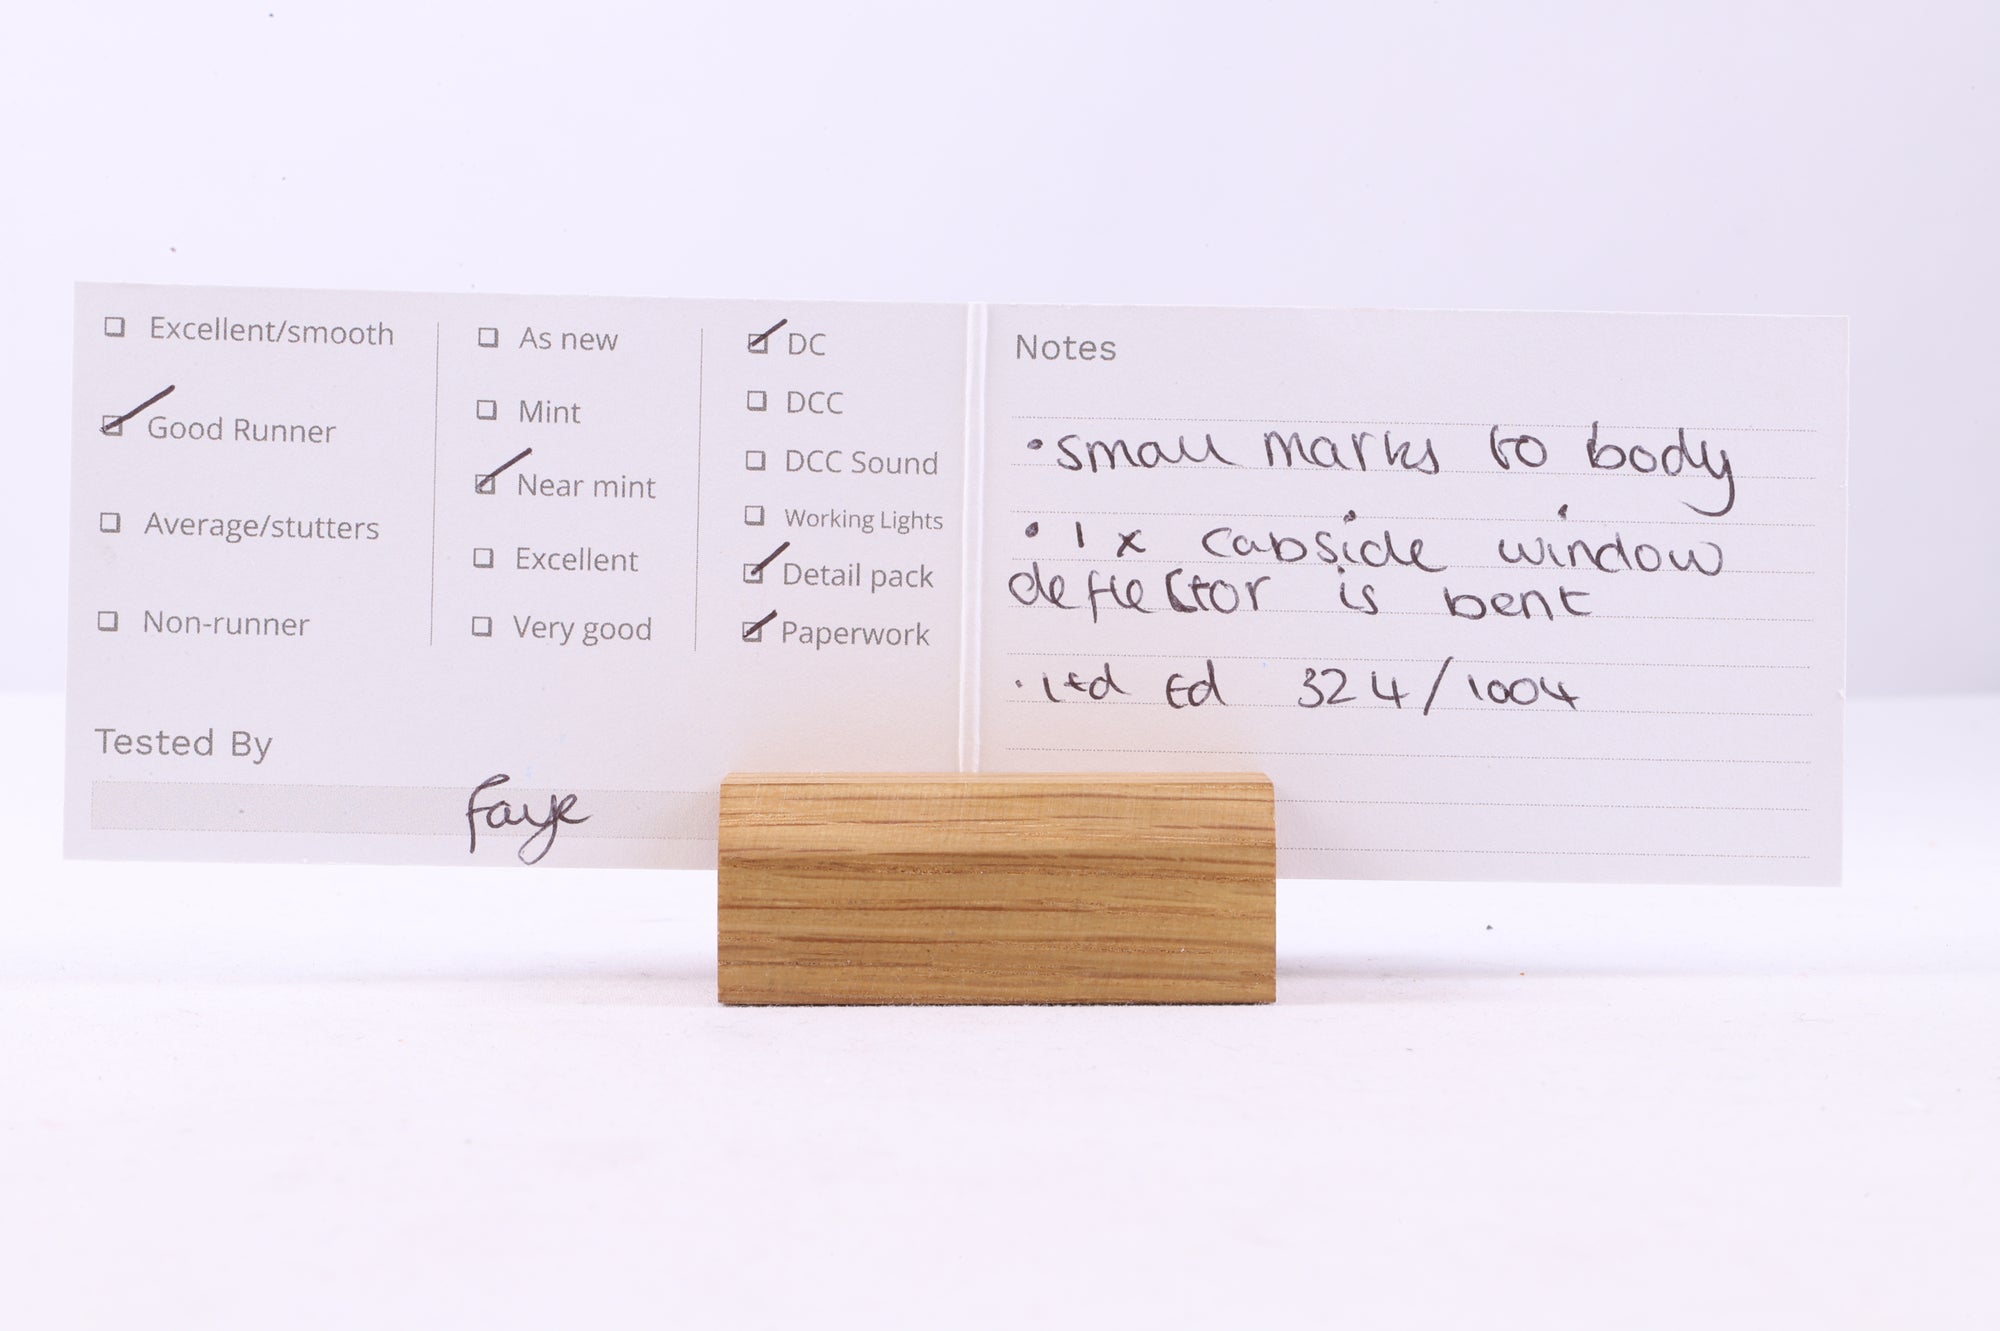 Excellent/smooth
Good Runner
Average/stutters
Non-runner
As new
Mint
Near mint
Excellent
Very good
DC
DCC
DCC Sound
Working Lights
Detail pack
Paperwork
Tested By
Faye
Notes
• small marks to body
• 1 x cabside window
deflector is bent
• Ltd Ed 324/1004